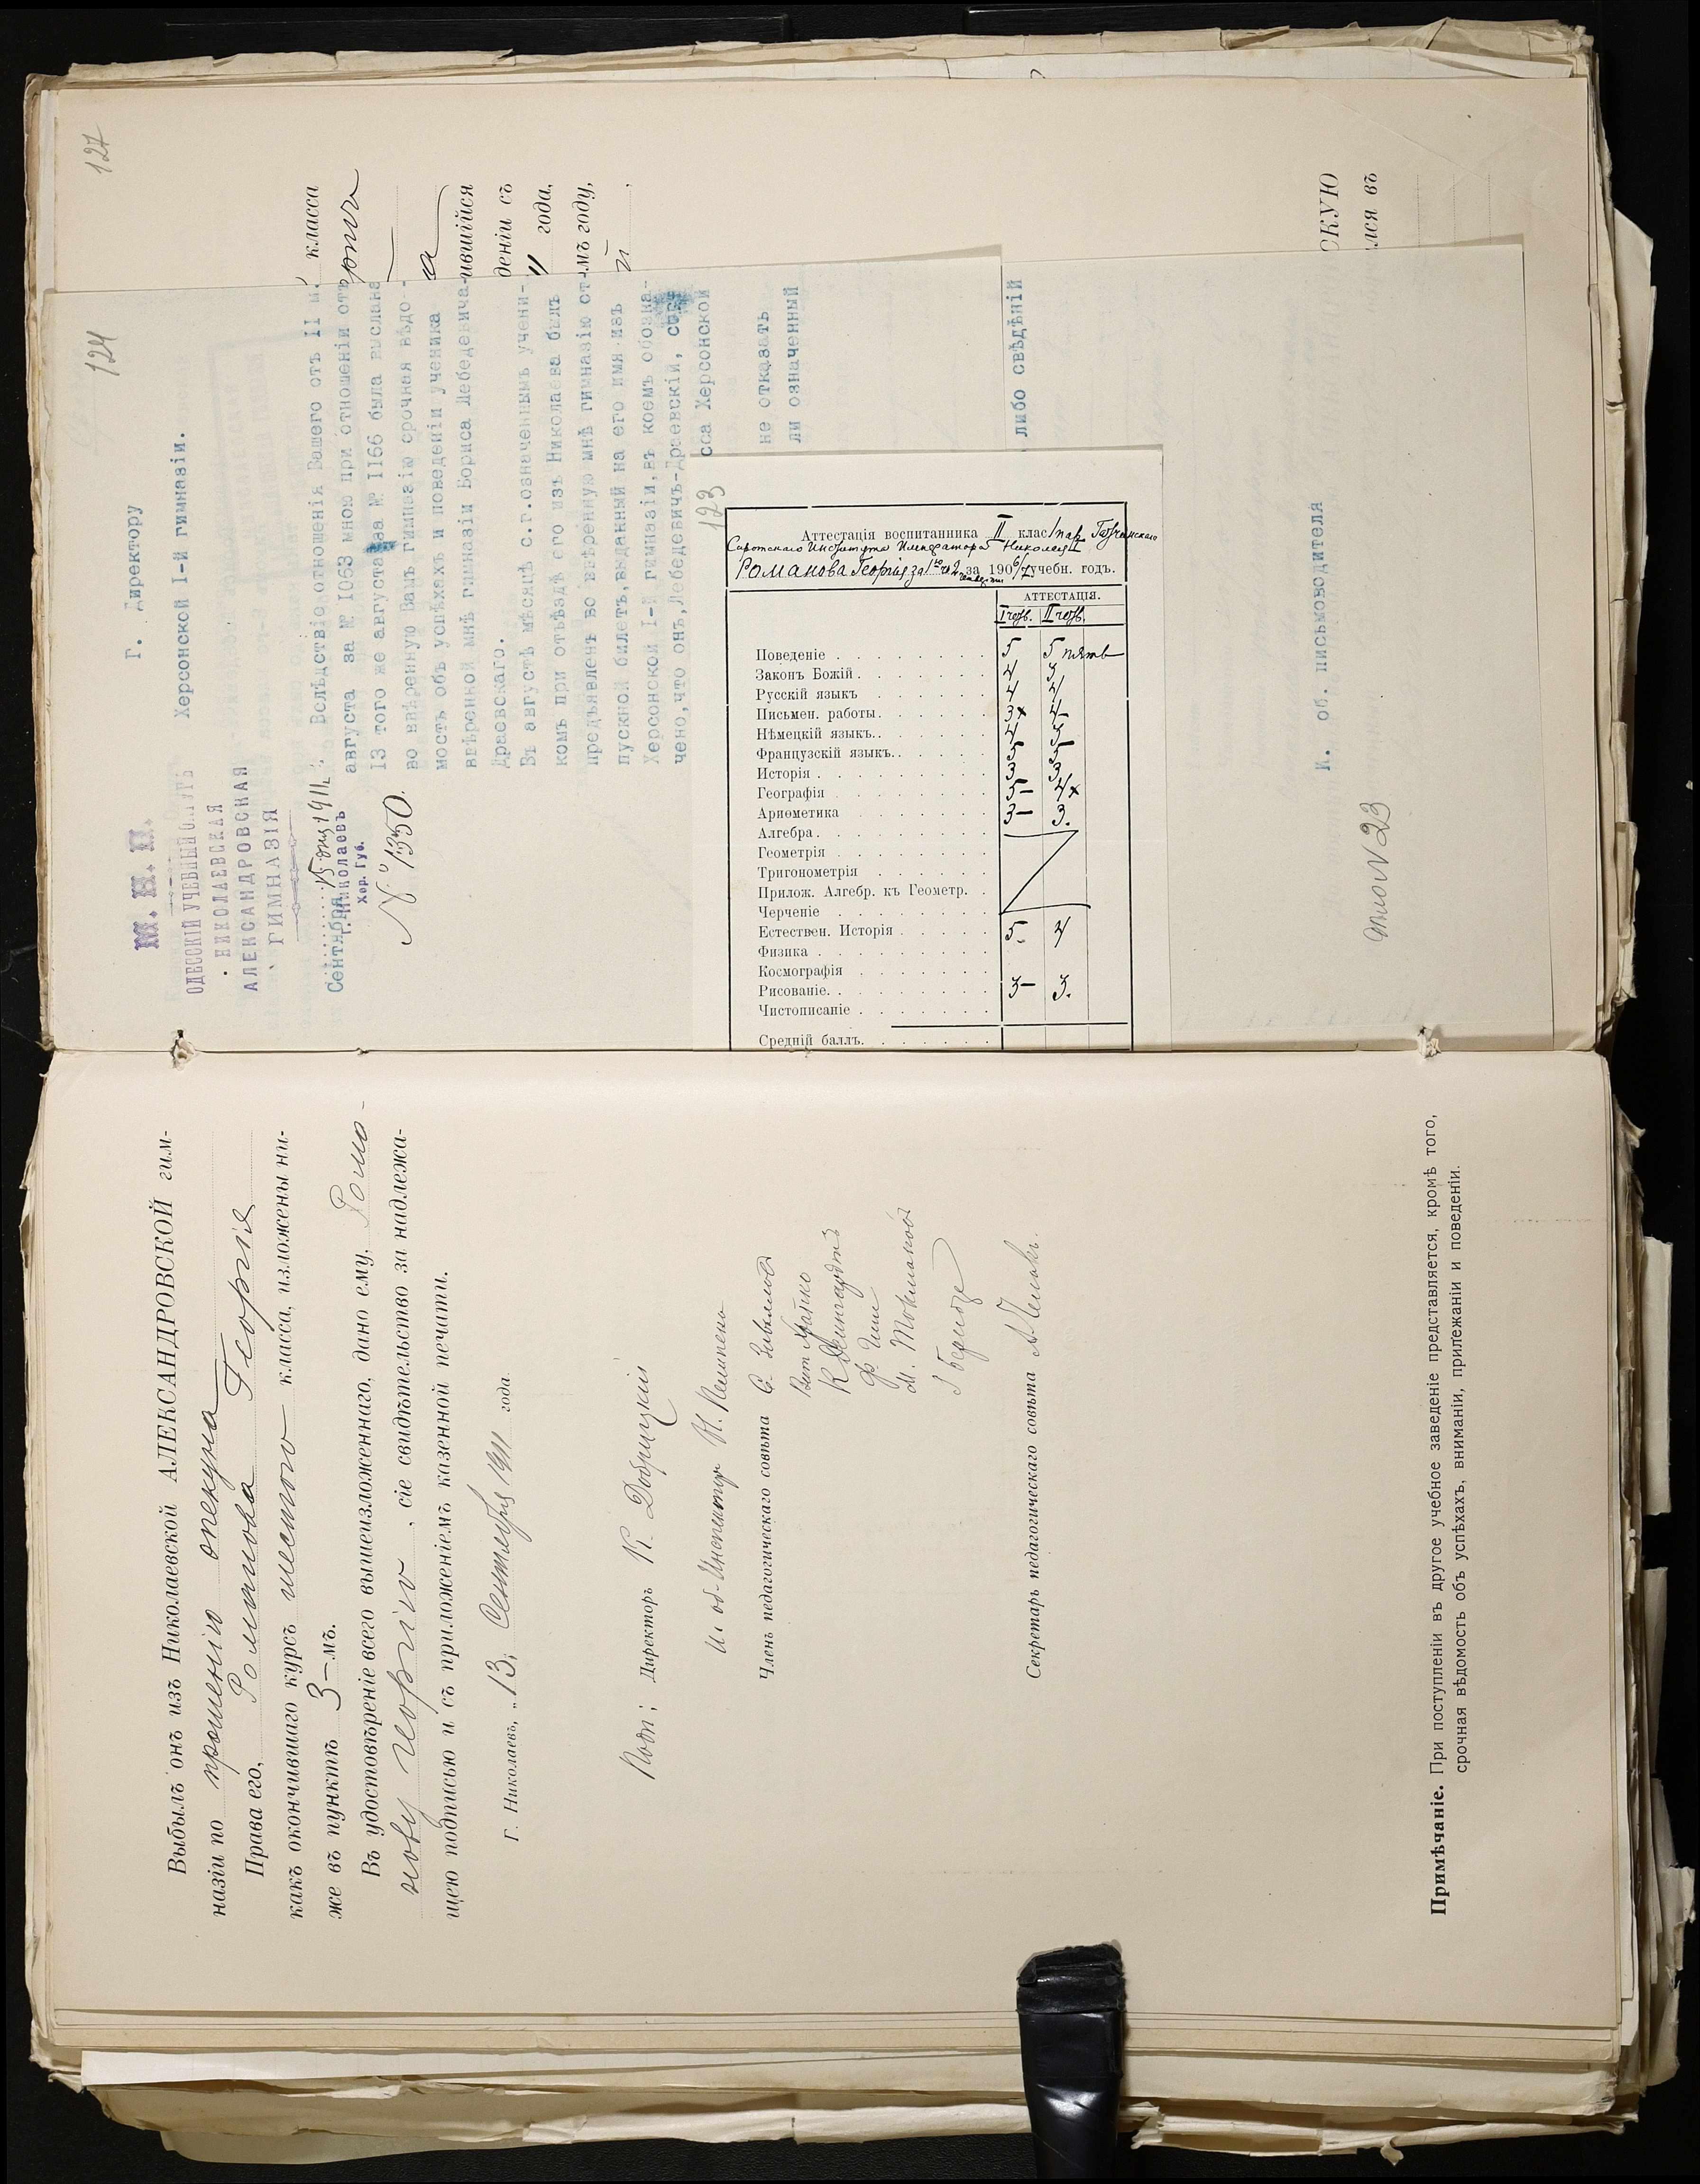 127
класса
рти
а
ившійся
деніи съ
11 года,
мъ году,
й
СКУЮ
лся въ
124
М. Н. П.
ОДЕССКІЙ УЧЕБНЫЙ ОКРУГЪ
НИКОЛАЕВСКАЯ
АЛЕКСАНДРОВСКАЯ
ГИМНАЗІЯ
Сентября 15 дня 1911 г.
г. Николаевъ
Хер. Губ.
№ 1350.
Г. Директору
Херсонской I-й гимназіи.
Вслѣдствіе отношенія Вашего отъ II м.
августа за № 1063 мною при отношеніи отъ
13 того же августа за № 1166 была выслана
во ввѣренную Вамъ гимназію срочная вѣдо-
мость объ успѣхахъ и поведеніи ученика
ввѣренной мнѣ гимназіи Бориса Лебедевича-
Драевскаго.
Въ августѣ мѣсяцѣ с.г. означеннымъ учени-
комъ при отъѣздѣ его изъ Николаева былъ
предъявленъ во ввѣренную мнѣ гимназію от-
пускной билетъ, выданный на его имя изъ
Херсонской I-й гимназіи, въ коемъ обозна-
чено, что онъ, Лебедевичъ-Драевскій,
сса Херсонской
не отказать
ли означенный
либо свѣдѣній
И. об. письмоводителя
дѣло № 23
123
Аттестація воспитанника II клас 1 пар. Гатчинскаго
Сиротскаго Института Императора Николая I
Романова Георгія за 1ю и 2 четверти за 1906/7 учебн. годъ.
АТТЕСТАЦІЯ.
I четв. II четв.
Поведеніе 5 5 пять
Законъ Божій 4 3
Русскій языкъ 4 4
Письмен. работы 3х 4-
Нѣмецкій языкъ 4 5
Французскій языкъ 5 5
Исторія 3 3
Географія 5- 4х
Ариѳметика 3- 3.
Алгебра
Геометрія
Тригонометрія
Прилож. Алгебр. къ Геометр.
Черченіе
Естествен. Исторія 5 4
Физика
Космографія
Рисованіе 3- 3.
Чистописаніе
Средній баллъ
Выбылъ онъ изъ Николаевской АЛЕКСАНДРОВСКОЙ гим-
назіи по прошенію опекуна
Права его, Романова Георгія
какъ окончившаго курсъ шестого класса, изложены ни-
же въ пунктѣ 3-мъ.
Въ удостовѣреніе всего вышеизложеннаго, дано ему, Рома-
нову Георгію, сіе свидѣтельство за надлежа-
щею подписью и съ приложеніемъ казенной печати.
Г. Николаевъ, „13„ Сентября 1911 года.
Подп: Директоръ К. Добрицкій
И. об. Инспектора
Членъ педагогическаго совѣта
М. Токмаковъ
Секретарь педагогическаго совѣта
Примѣчаніе. При поступленіи въ другое учебное заведеніе представляется, кромѣ того,
срочная вѣдомость объ успѣхахъ, вниманіи, прилежаніи и поведеніи.